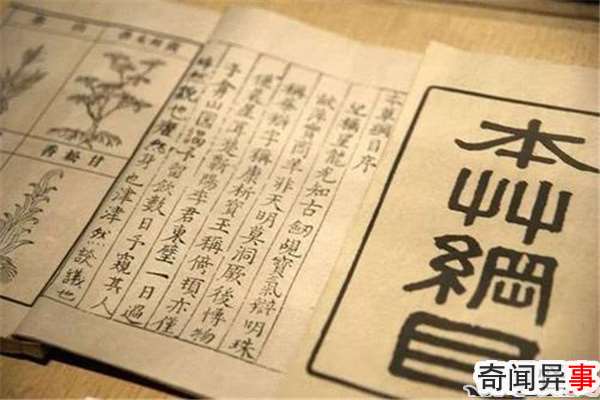 本艸綱目
本草綱目序
紀稱望龍光知古劔覘寶氣辯明珠
故萍實商羊非天明莫洞厥後博物
稱華辯字稱康析寶玉稱倚頓亦僅
僅晨星耳楚蘄陽李君東璧一日過
予弇山園謁予留飲數日予窺其人
睟然貌也癯然身也津津然談議也
甘松香
奇闻异事